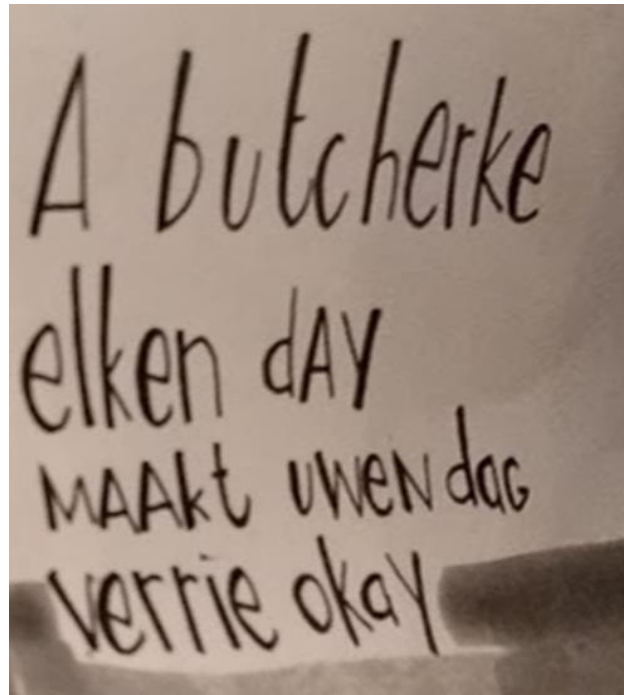 A butcherke
elken dAY
MAAkt UWEN daG
verrie okay